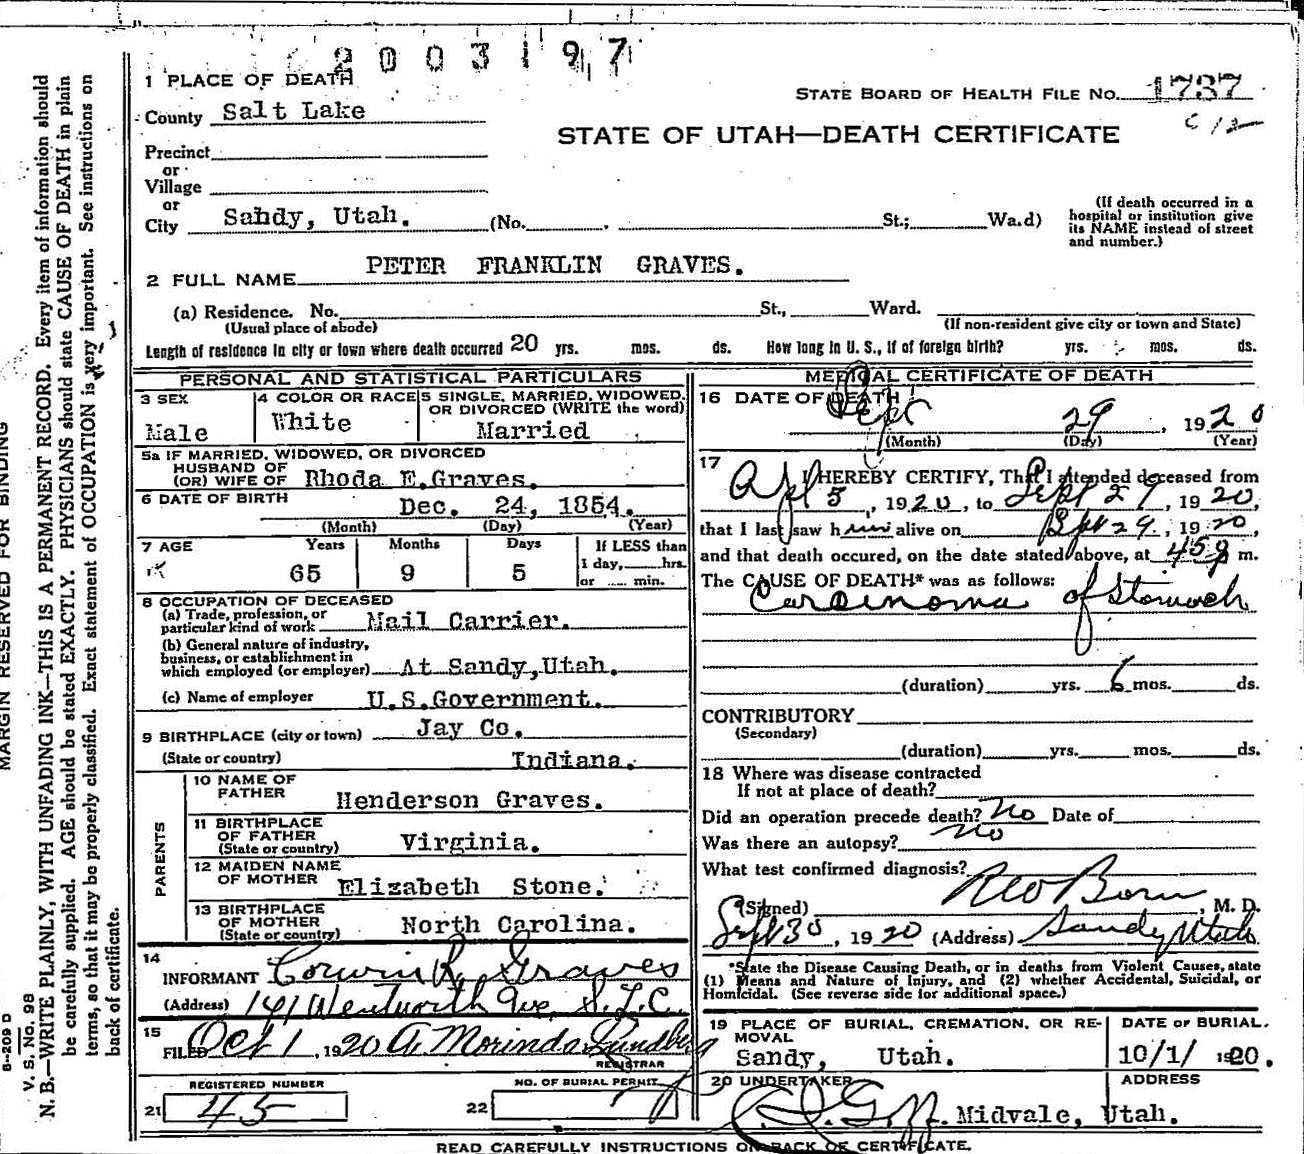 2003197
1 PLACE OF DEATH
STATE BOARD OF HEALTH FILE No. 1737
County Salt Lake
STATE OF UTAH—DEATH CERTIFICATE
Precinct
or
Village
or
City Sandy, Utah. (No. St.; Wa.d)
(If death occurred in a
hospital or institution give
its NAME instead of street
and number.)
2 FULL NAME PETER FRANKLIN GRAVES.
(a) Residence. No. St., Ward.
(Usual place of abode) (If non-resident give city or town and State)
Length of residence in city or town where death occurred 20 yrs. mos. ds. How long in U. S., if of foreign birth? yrs. mos. ds.
PERSONAL AND STATISTICAL PARTICULARS
3 SEX
Male
4 COLOR OR RACE
White
5 SINGLE, MARRIED, WIDOWED,
OR DIVORCED (WRITE the word)
Married
5a IF MARRIED, WIDOWED, OR DIVORCED
HUSBAND OF
(OR) WIFE OF Rhoda E.Graves.
6 DATE OF BIRTH
Dec. 24, 1854.
(Month) (Day) (Year)
7 AGE Years Months Days If LESS than
1 day, hrs.
65 9 5 or min.
8 OCCUPATION OF DECEASED
(a) Trade, profession, or
particular kind of work Mail Carrier.
(b) General nature of industry,
business, or establishment in
which employed (or employer) At Sandy,Utah.
(c) Name of employer U.S.Government.
9 BIRTHPLACE (city or town) Jay Co.
(State or country) Indiana.
PARENTS
10 NAME OF
FATHER Henderson Graves.
11 BIRTHPLACE
OF FATHER
(State or country) Virginia.
12 MAIDEN NAME
OF MOTHER Elizabeth Stone.
13 BIRTHPLACE
OF MOTHER
(State or country) North Carolina.
14
INFORMANT Corwin R. Graves
(Address) 141 Wentworth Ave, S.L.C.
15
FILED Oct 1, 1920 A Morinda Lundberg
REGISTRAR
REGISTERED NUMBER NO. OF BURIAL PERMIT
21 45 22
MEDICAL CERTIFICATE OF DEATH
16 DATE OF DEATH
Sept 29, 1920
(Month) (Day) (Year)
17
I HEREBY CERTIFY, That I attended deceased from
Apl 5, 1920, to Sept 29, 1920,
that I last saw him alive on Sept 29, 1920,
and that death occured, on the date stated above, at 459 p m.
The CAUSE OF DEATH* was as follows:
Carcinoma of Stomach
(duration) yrs. 6 mos. ds.
CONTRIBUTORY
(Secondary)
(duration) yrs. mos. ds.
18 Where was disease contracted
If not at place of death?
Did an operation precede death? No Date of
Was there an autopsy? No
What test confirmed diagnosis?
(Signed) , M. D.
Sept 30, 1920 (Address) Sandy Utah
*State the Disease Causing Death, or in deaths from Violent Causes, state
(1) Means and Nature of Injury, and (2) whether Accidental, Suicidal, or
Homicidal. (See reverse side for additional space.)
19 PLACE OF BURIAL, CREMATION, OR RE-
MOVAL
Sandy, Utah.
DATE OF BURIAL.
10/1/ 1920.
20 UNDERTAKER ADDRESS
Midvale, Utah.
READ CAREFULLY INSTRUCTIONS ON BACK OF CERTIFICATE.
MARGIN RESERVED FOR BINDING
V. S. No. 98
N. B.—WRITE PLAINLY, WITH UNFADING INK—THIS IS A PERMANENT RECORD. Every item of information should
be carefully supplied. AGE should be stated EXACTLY. PHYSICIANS should state CAUSE OF DEATH in plain
terms, so that it may be properly classified. Exact statement of OCCUPATION is very important. See instructions on
back of certificate.